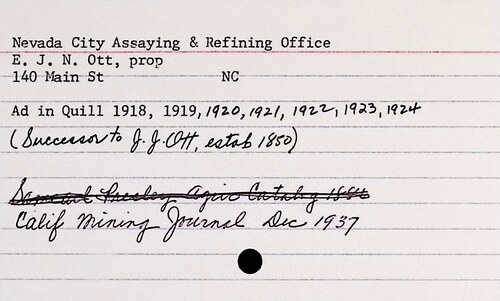 Nevada City Assaying & Refining Office
E. J. N. Ott, prop
140 Main St NC
Ad in Quill 1918, 1919, 1920, 1921, 1922, 1923, 1924
(Successor to J. J. Ott, estab 1850)
Presley Agric Catalog 1884
Calif Mining Journal Dec 1937